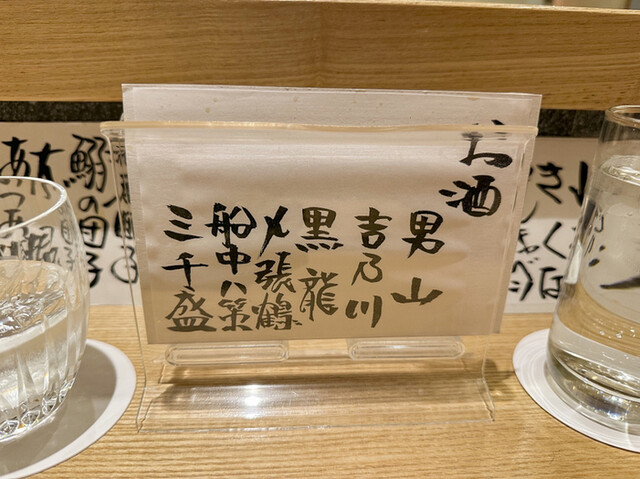 お酒
男山
吉乃川
黒龍
〆張鶴
船中八策
三千盛
鰯の団子